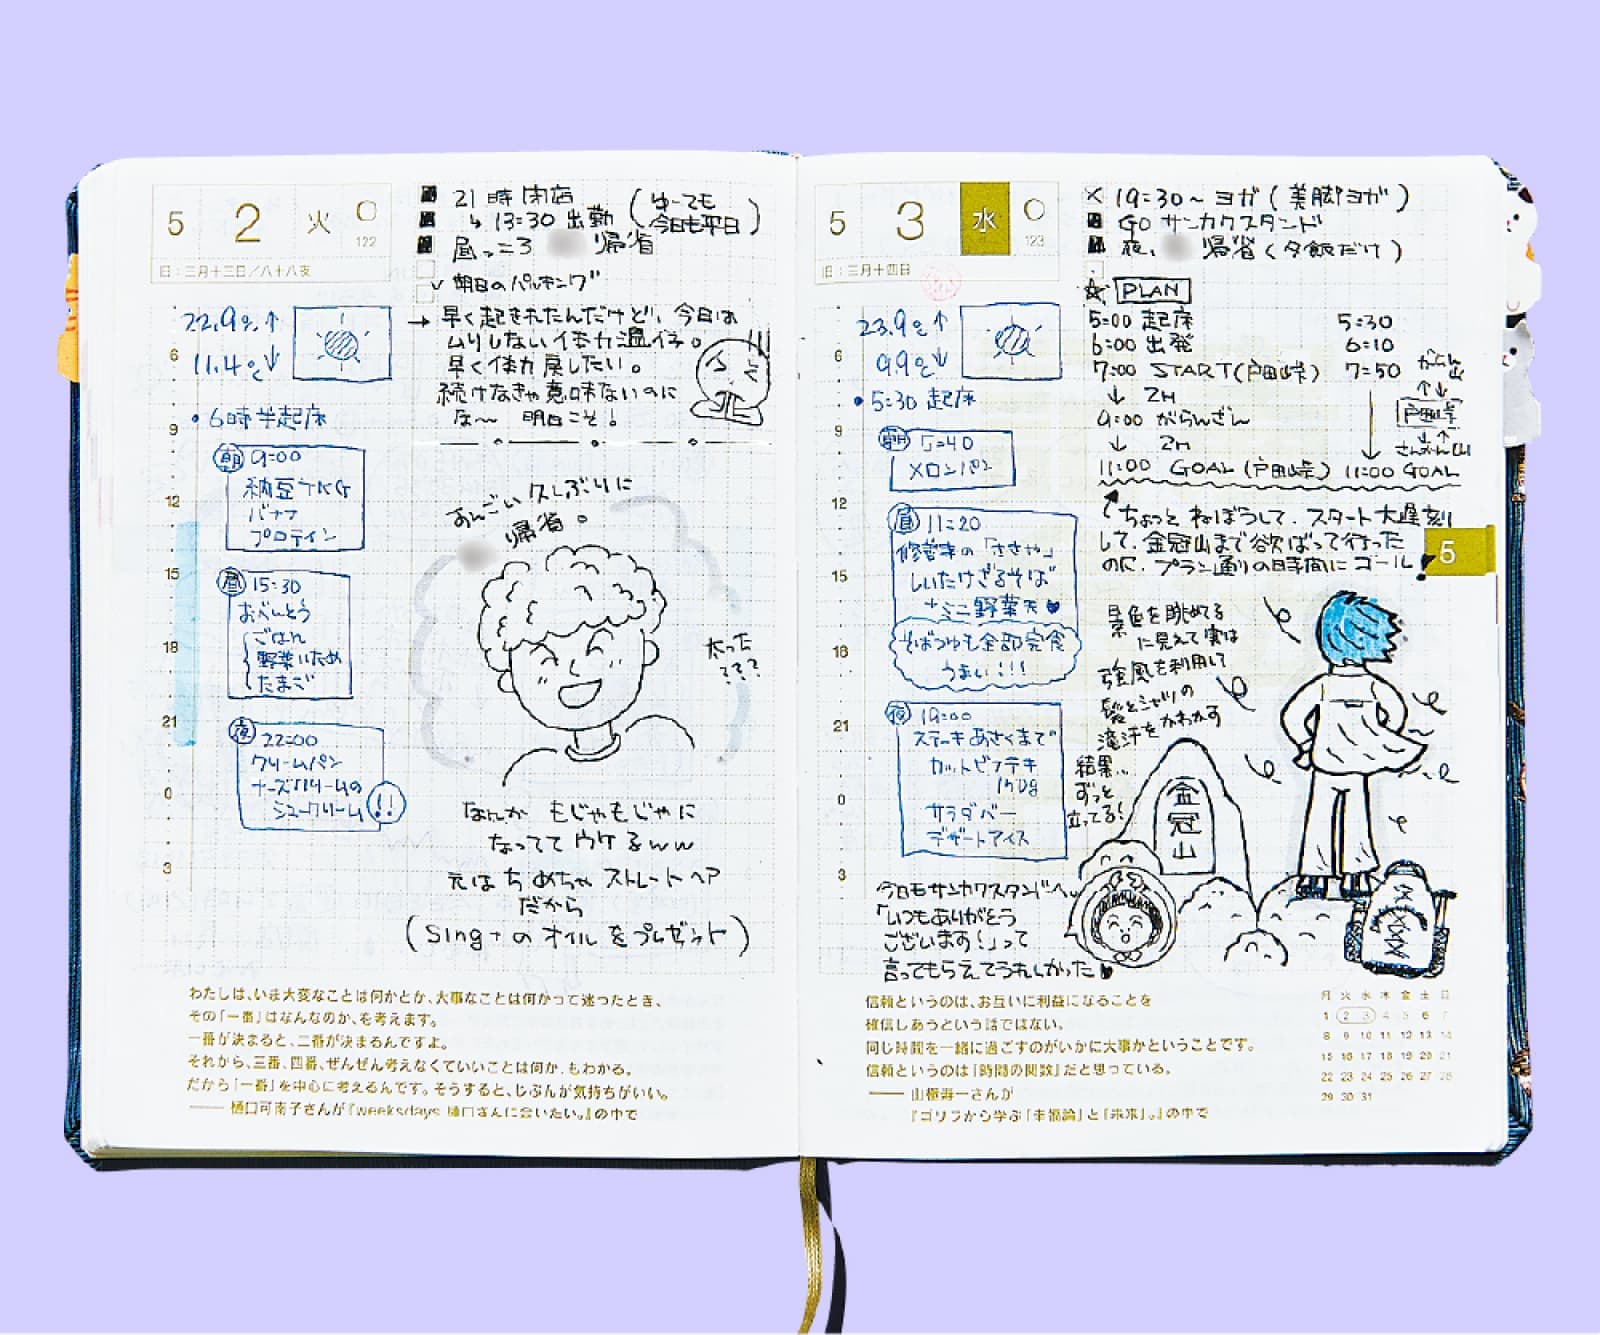 5 2 火
122
旧:三月十三日/八十八夜
21時閉店
↳ 13:30 出勤
(ゆーても
今日も平日)
昼っころ 帰省
✓ 明日のパッキング
22.9℃↑
11.4℃↓
→ 早く起きれたんだけど、今日は
ムリしない体力温存。
早く体力戻したい。
続けなきゃ意味ないのに
な〜 明日こそ!
・6時半起床
朝 9:00
納豆TKG
バナナ
プロテイン
昼 15:30
おべんとう
ごはん
野菜いため
たまご
夜 22:00
クリームパン
チーズクリームの
シュークリーム
!!
6
9
12
15
18
21
0
3
久しぶりに
帰省。
太った
???
なんか もじゃもじゃに
なってて ウケるww
元は ちめちゃ ストレートヘア
だから
(Sing+の オイル をプレゼント)
わたしは、いま大変なことは何かとか、大事なことは何かって迷ったとき、
その「一番」はなんなのか、を考えます。
一番が決まると、二番が決まるんですよ。
それから、三番、四番、ぜんぜん考えなくていいことは何か、もわかる。
だから「一番」を中心に考えるんです。そうすると、じぶんが気持ちがいい。
—— 樋口可南子さんが『weeksdays 樋口さんに会いたい。』の中で
5 3 水
123
旧:三月十四日
× 19:30〜ヨガ(美脚ヨガ)
GO サンカクスタンド
夜、 帰省(夕飯だけ)
☆ PLAN
5:00 起床 5:30
6:00 出発 6:10
7:00 START(戸田峠) 7:50
↓ 2H
9:00 がらんざん
↓ 2H
11:00 GOAL (戸田峠) 11:00 GOAL
がらん
山
↑↓
戸田峠
↓↑
きんかん山
ちょっと ねぼうして、スタート大遅刻
して、金冠山まで欲ばって行った
のに、プラン通りの時間にゴール!
5
23.9℃↑
9.9℃↓
・5:30 起床
朝 5:40
メロンパン
昼 11:20
修善寺の「ささや」
しいたけざるそば
+ミニ野菜天♥
そばつゆも全部完食
うまい!!!
夜 19:00
ステーキあさくまで
カットビフテキ
150g
サラダバー
デザートアイス
6
9
12
15
18
21
0
3
景色を眺めてる
に見えて実は
強風を利用して
髪とシャツの
滝汗をかわかす
結果、、
ずっと
立ってる!
金冠山
今日もサンカクスタンドへ。
「いつもありがとう
ございます!」って
言ってもらえてうれしかった♥
信頼というのは、お互いに利益になることを
確信しあうという話ではない。
同じ時間を一緒に過ごすのがいかに大事かということです。
信頼というのは「時間の関数」だと思っている。
—— 山極寿一さんが
『ゴリラから学ぶ「幸福論」と「未来」。』の中で
月 火 水 木 金 土 日
1 2 3 4 5 6 7
8 9 10 11 12 13 14
15 16 17 18 19 20 21
22 23 24 25 26 27 28
29 30 31